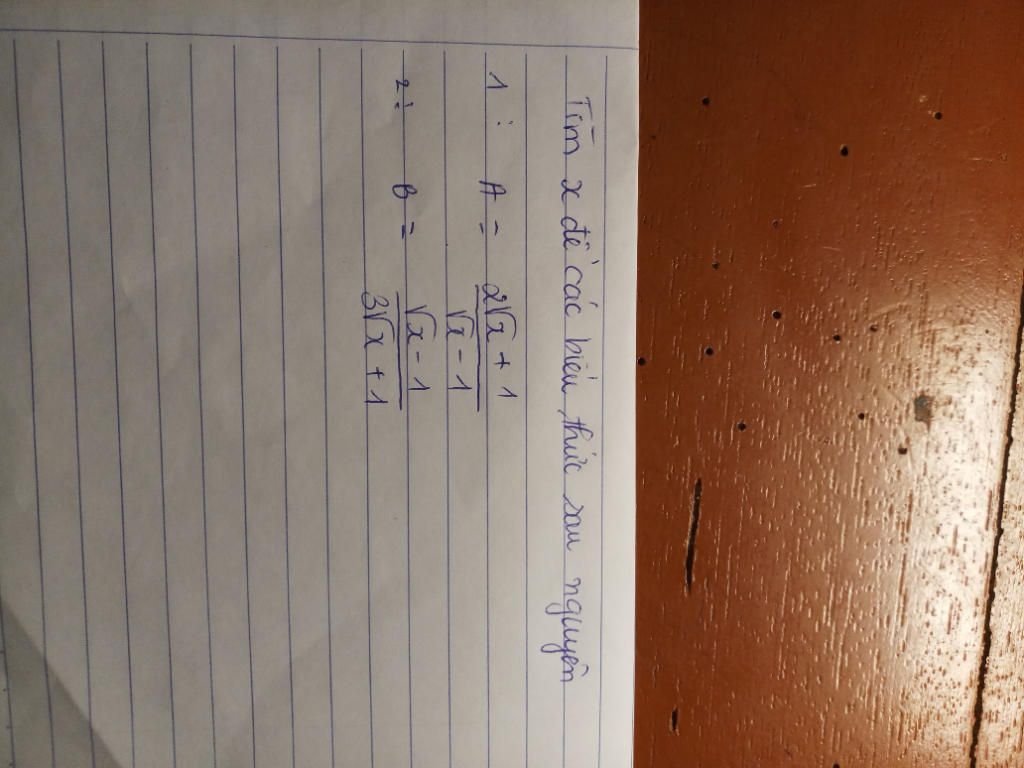 Tìm x để các biểu thức sau nguyên
1: A = (2√x + 1)/(√x - 1)
2: B = (√x - 1)/(3√x + 1)